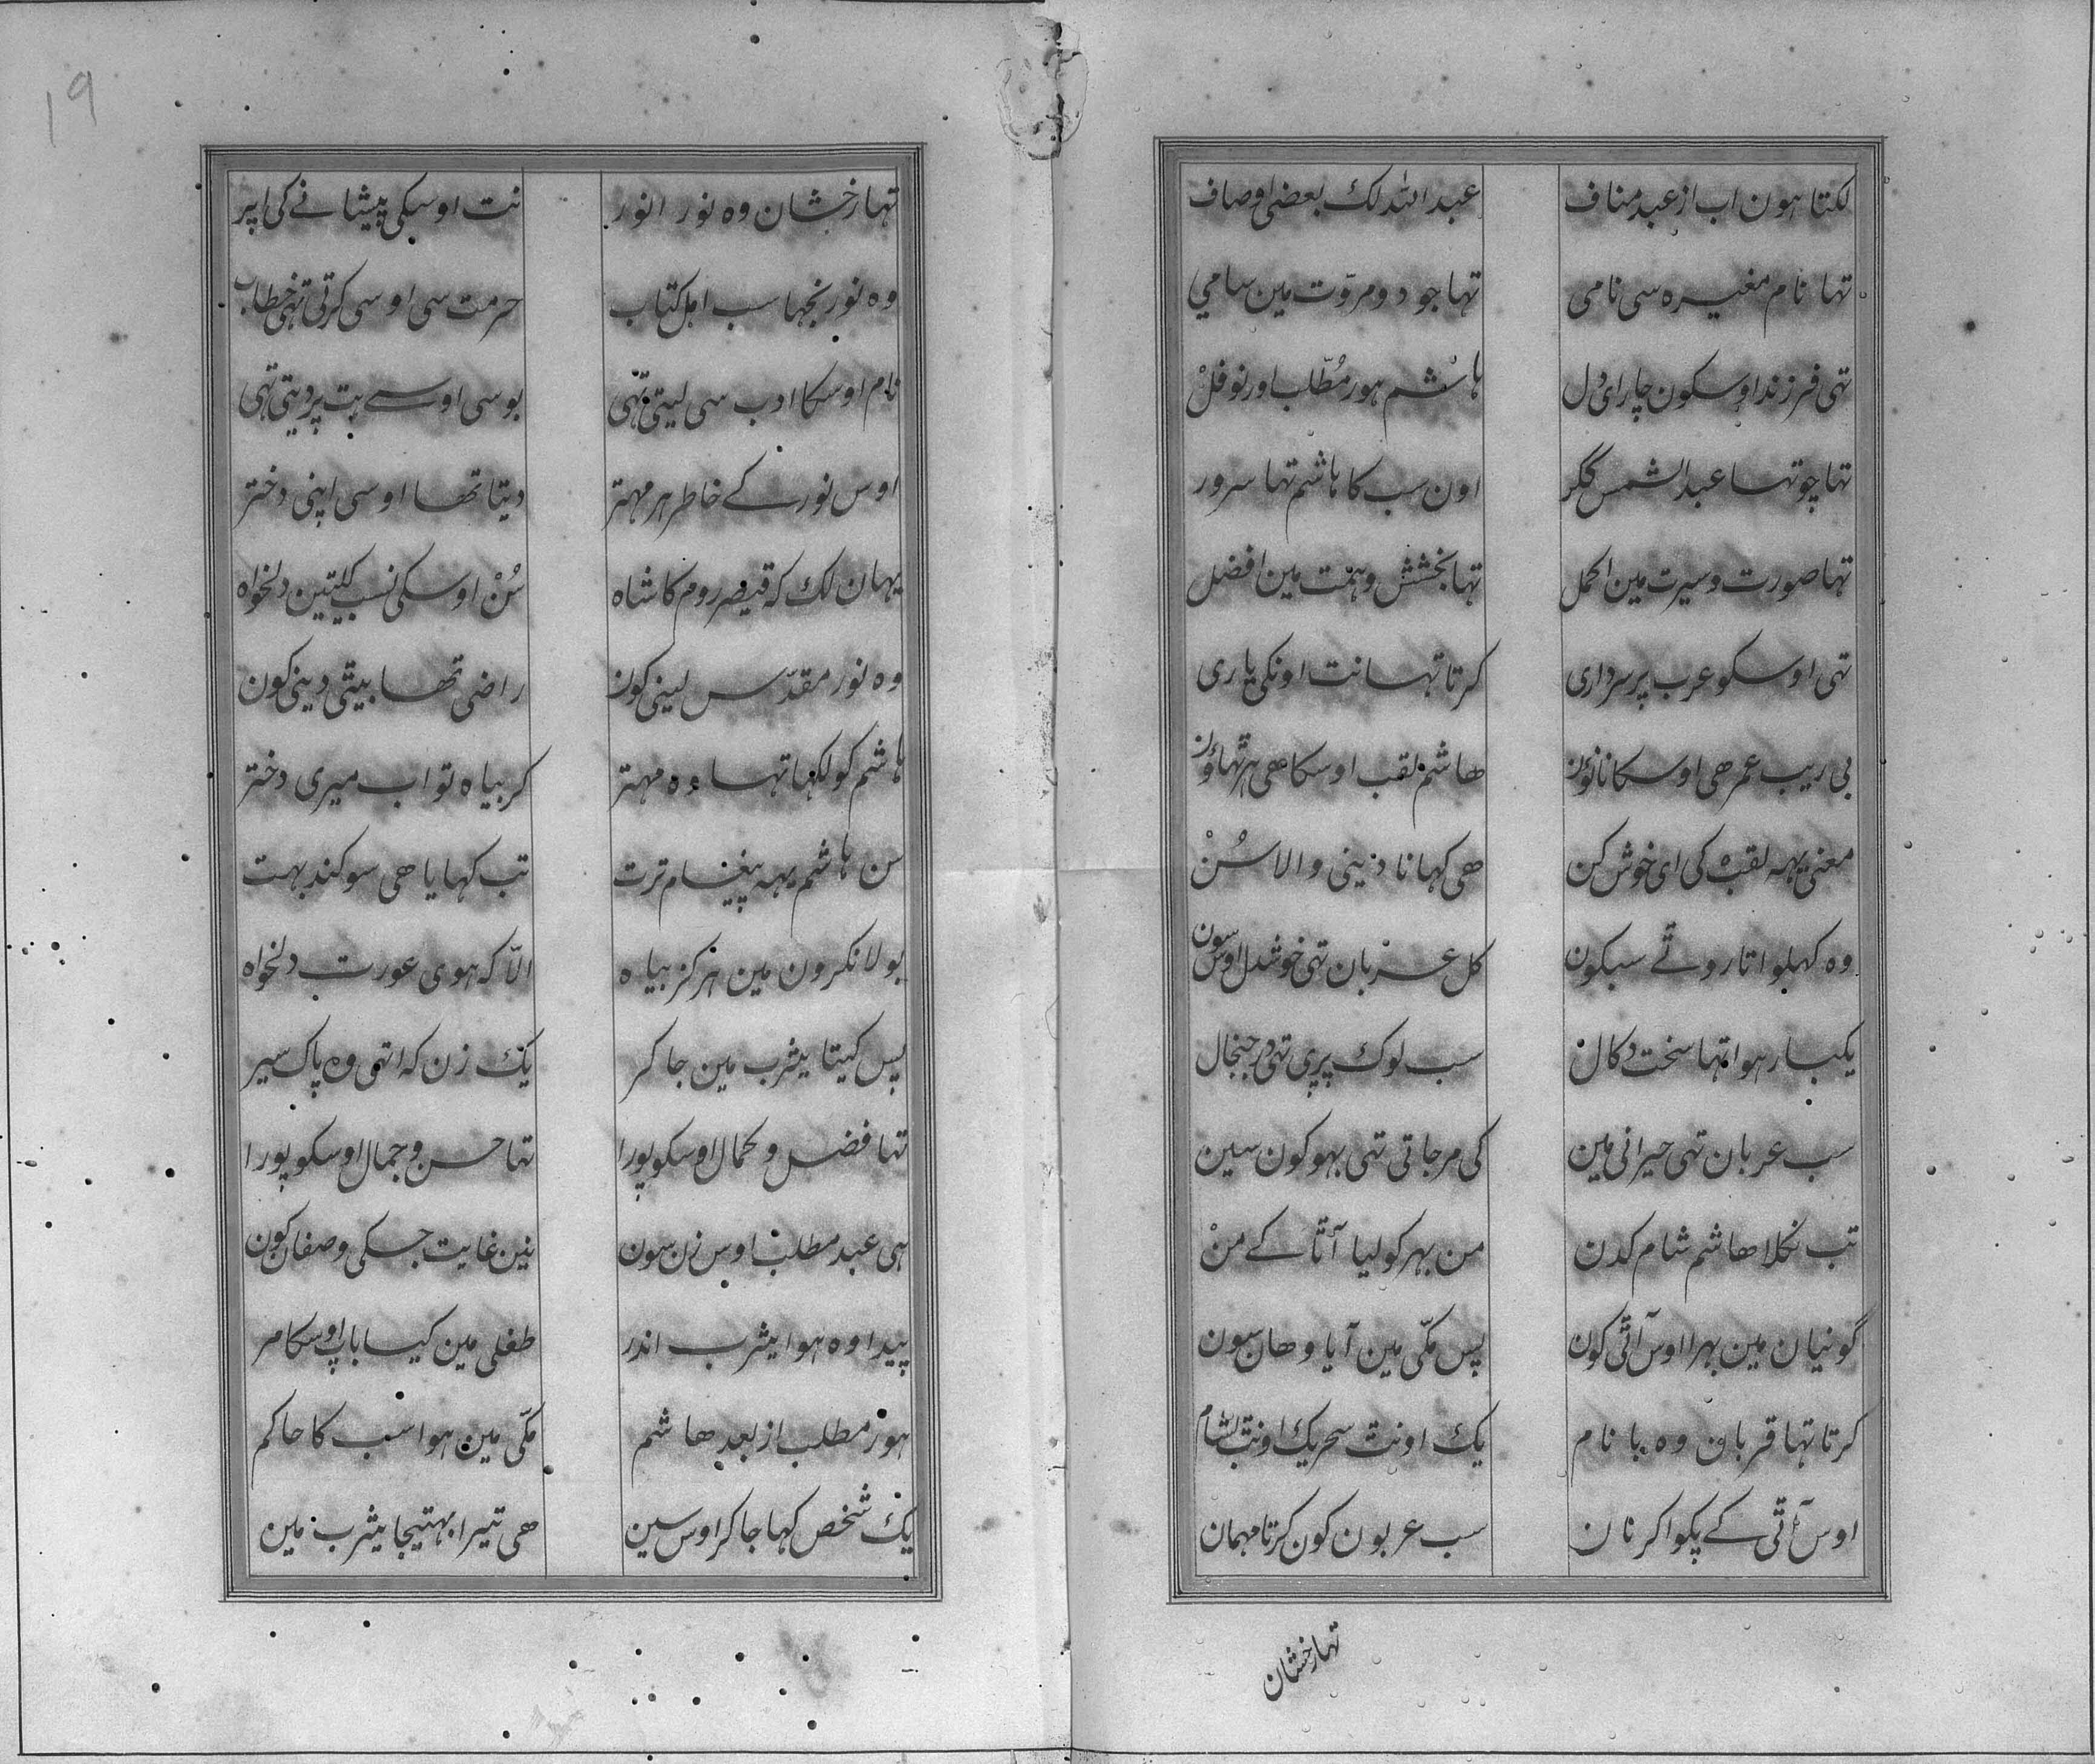 لکتا ہون اب از عبد مناف عبد اللہ لک بعضی اوصاف
تہا نام مغیرہ سی نامی تہا جود و مروّت مین سامی
تہی فرزند اوسکون چار ای دل ہاشم ہور مُطّلب اور نوفلْ
تہا چوتہا عبد الشمس ککر اون سب کا ہاشم تہا سرور
تہا صورت و سیرت مین اکمل تہا بخشش و ہمّت مین افضل
تہی اوسکو عرب پر سرداری کرتا تہا نت اونکی یاری
بی ریب عمر ھی اوسکا نانون ھاشم لقب اوسکا ھی ہر تہاون
معنی یہہ لقب کی ای خوش کن ھی کہانا دینی والا سُنْ
وہ کہلواتا روتی سبکون کل عربان تہی خوشدل اوس سون
یکبار ہوا تہا سخت دکال سب لوک پری تہی در جنجال
سب عربان تہی حیرانی مین کی مر جاتی تہی بہوکون سین
تب نکلا ھاشم شام کدن من بہر کو لیا آٹا کے منْ
گونیان مین بہرا اوس آٹی کون پس مکّی مین آیا وھان سون
کرتا تہا قربان وہ با نام یک اونت سحر یک اونت بشام
اوس آٹی کے پکوا کر نان سب عربون کون کرتا مہمان
تہا رخشان
19
تہا رخشان وہ نور انور نت اوسکی پیشانے کی اپر
وہ نور بجہا سب اہل کتاب حرمت سی اوسی کرتی تہی خطاب
نام اوسکا ادب سی لیتی تہی بوسی اوسے ہت پر دیتی تہی
اوس نور کے خاطر ہر مہتر دیتا تھا اوسی اپنی دختر
یہان لک کہ قیصر روم کا شاہ سُنْ اوسکی نسب کیتین دلخواہ
وہ نور مقدّس لینی کون راضی تھا بیٹی دینی کون
ہاشم کو لکہا تہا وہ مہتر کر بیاہ تو اب میری دختر
سن ہاشم یہہ پیغام ترت تب کہایا ھی سوکند بہت
بولا نکرون مین ہرکز بیاہ الّا کہ ہوی عورت دلخواہ
پس کیتا یثرب مین جا کر یک زن کہ اتھی وہ پاک سیر
تہا فضل و کمال اوسکو پورا تہا حسن و جمال اوسکو پورا
ہی عبد مطلب اوس زن سون نین غایت جسکی وصفان کون
پیدا وہ ہوا یثرب اندر طفلی مین کیا باپ اوسکا مر
ہور مطلب از بعد ھاشم مکّی مین ہوا سب کا حاکم
یک شخص کہا جا کر اوس سین ھی تیرا بہتیجا یثرب مین